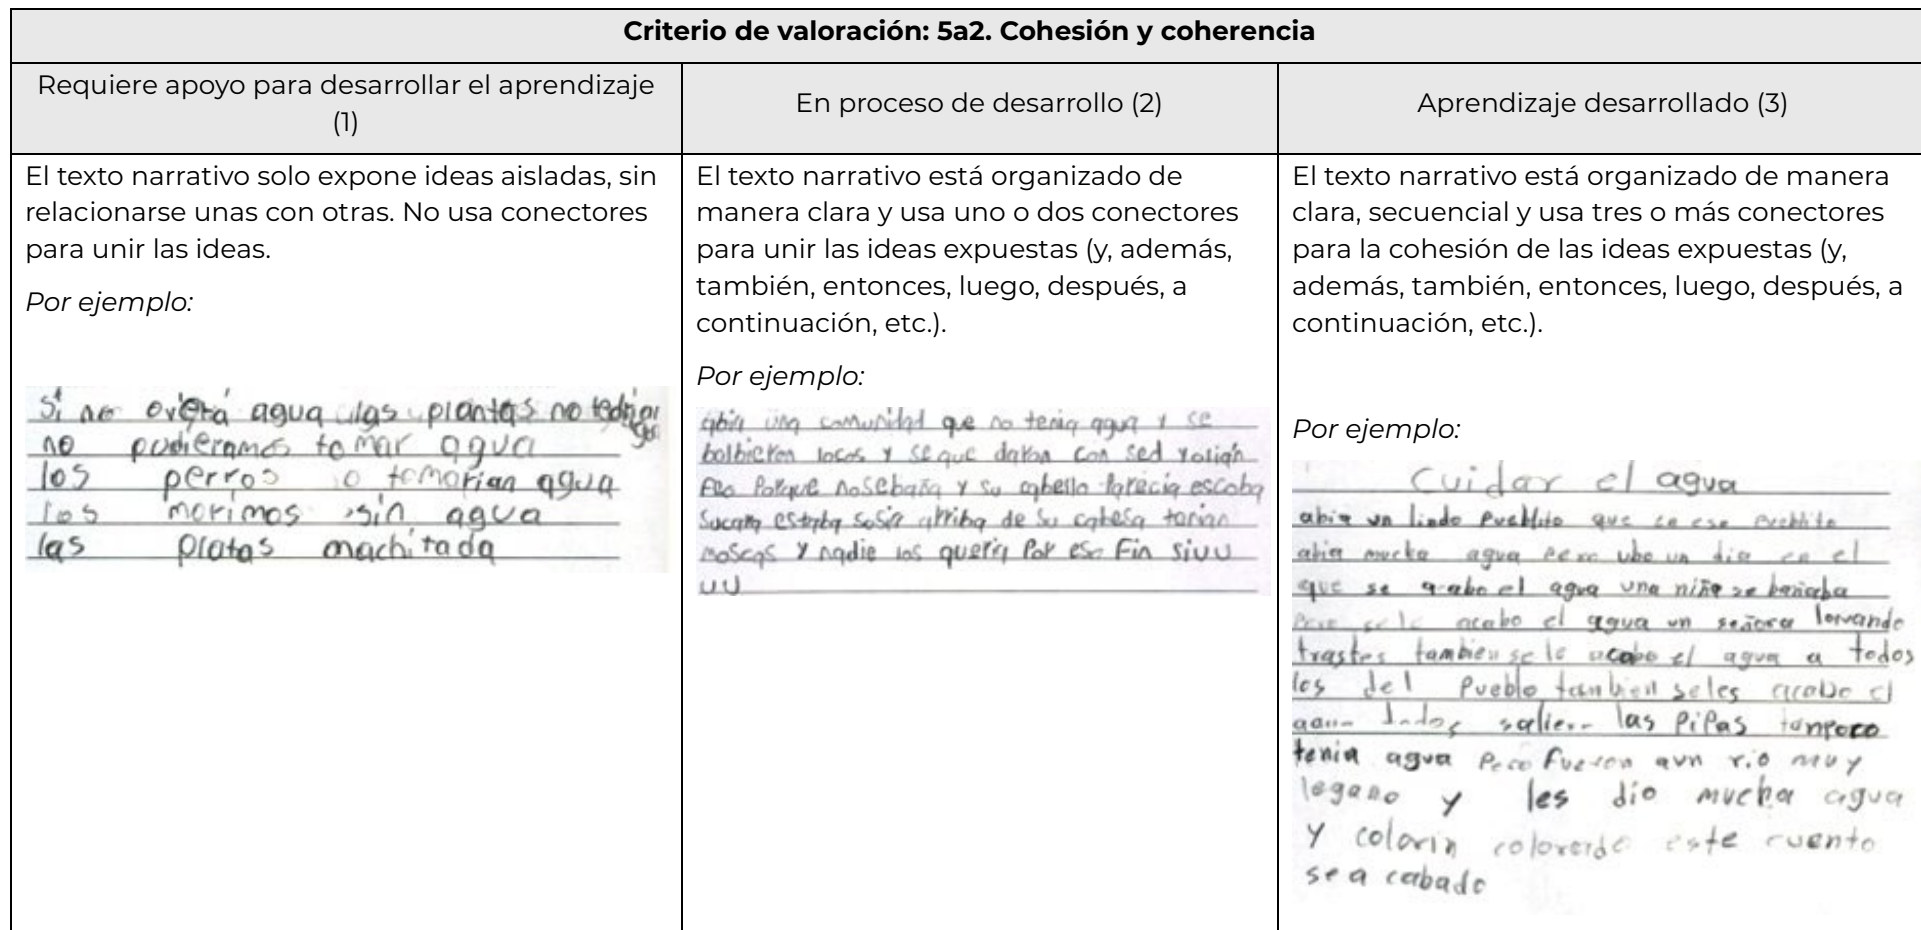 Criterio de valoración: 5a2. Cohesión y coherencia
Requiere apoyo para desarrollar el aprendizaje
(1)
En proceso de desarrollo (2)
Aprendizaje desarrollado (3)
El texto narrativo solo expone ideas aisladas, sin
relacionarse unas con otras. No usa conectores
para unir las ideas.
Por ejemplo:
Si no agua las plantas no
no pudieramos tomar agua
los perros o tomarian agua
los morimos sin agua
las platas machitada
El texto narrativo está organizado de
manera clara y usa uno o dos conectores
para unir las ideas expuestas (y, además,
también, entonces, luego, después, a
continuación, etc.).
Por ejemplo:
abia una comunidad que no tenia agua y se
bolbieron locos y se que daron con sed y
feo Porque nosebaña y su cabello Parecia escoba
sucara estaba arriba de su cabesa tenian
moscas y nadie los queria Por eso Fin siuu
uu
El texto narrativo está organizado de manera
clara, secuencial y usa tres o más conectores
para la cohesión de las ideas expuestas (y,
además, también, entonces, luego, después, a
continuación, etc.).
Por ejemplo:
Cuidar el agua
abia un lindo Pueblito que en ese Pueblito
abia mucha agua Pero ubo un dia en el
que se acabo el agua una niña se bañaba
Pero se le acabo el agua un señora lavando
trastes tambien se le acabo el agua a todos
los del Pueblo tambien seles acabo el
agua todos las PiPas tampoco
tenia agua Pero fueron aun rio muy
legano y les dio mucha agua
y colorin colorado este cuento
se a cabado